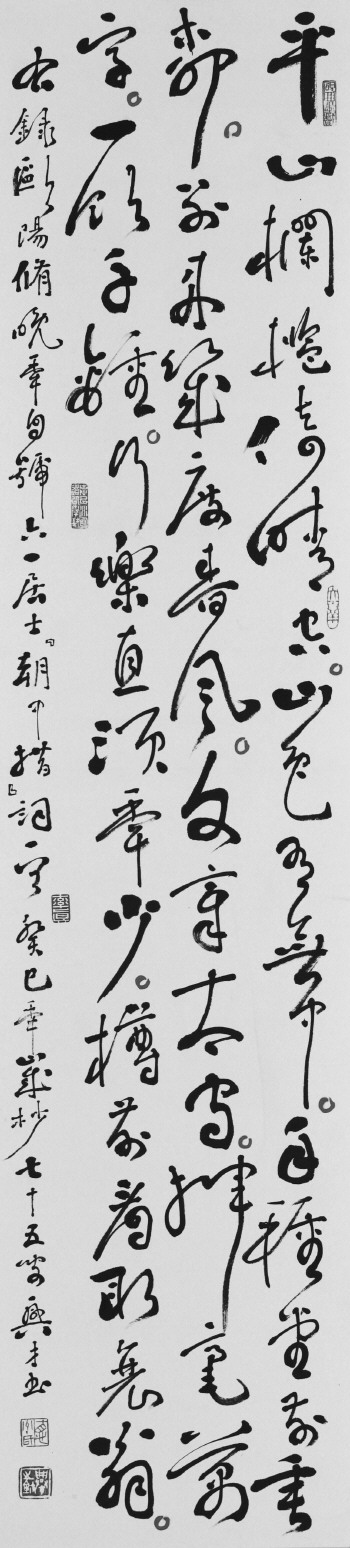 平山欄檻倚晴空。山色有無中。手種堂前垂
柳。別來幾度春風。文章太守。揮毫萬
字。一飲千鍾。行樂直須年少。樽前看取衰翁。
右錄歐陽脩晚年自號六一居士「朝中措」詞一首癸巳年歲杪七十五叟興才書